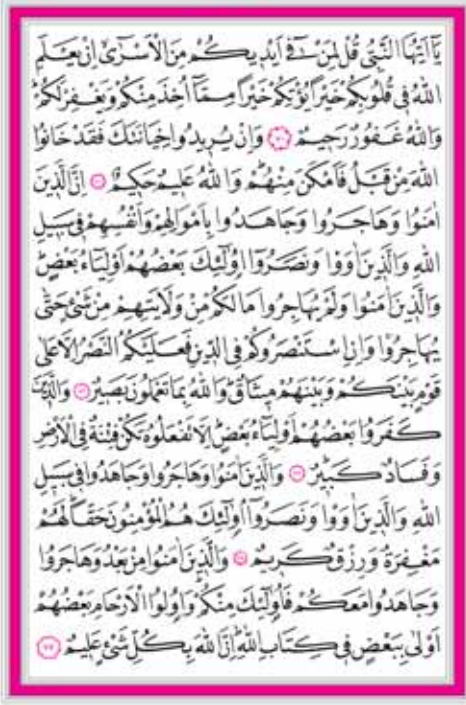 يَٓا اَيُّهَا النَّبِيُّ قُلْ لِمَنْ فٓي اَيْدٖيكُمْ مِنَ الْاَسْرٰٓىۙ اِنْ يَعْلَمِ
اللّٰهُ فٖي قُلُوبِكُمْ خَيْرًا يُؤْتِكُمْ خَيْرًا مِمَّٓا اُخِذَ مِنْكُمْ وَيَغْفِرْ لَكُمْۜ
وَاللّٰهُ غَفُورٌ رَحٖيمٌ ﴿٧٠﴾ وَاِنْ يُرٖيدُوا خِيَانَتَكَ فَقَدْ خَانُوا
اللّٰهَ مِنْ قَبْلُ فَاَمْكَنَ مِنْهُمْۜ وَاللّٰهُ عَلٖيمٌ حَكٖيمٌ ﴿٧١﴾ اِنَّ الَّذٖينَ
اٰمَنُوا وَهَاجَرُوا وَجَاهَدُوا بِاَمْوَالِهِمْ وَاَنْفُسِهِمْ فٖي سَبٖيلِ
اللّٰهِ وَالَّذٖينَ اٰوَوْا وَنَصَرُٓوا اُو۬لٰٓئِكَ بَعْضُهُمْ اَوْلِيَٓاءُ بَعْضٍۜ
وَالَّذٖينَ اٰمَنُوا وَلَمْ يُهَاجِرُوا مَا لَكُمْ مِنْ وَلَايَتِهِمْ مِنْ شَيْءٍ حَتّٰى
يُهَاجِرُواۚ وَاِنِ اسْتَنْصَرُوكُمْ فِي الدّٖينِ فَعَلَيْكُمُ النَّصْرُ اِلَّا عَلٰى
قَوْمٍ بَيْنَكُمْ وَبَيْنَهُمْ مٖيثَاقٌۜ وَاللّٰهُ بِمَا تَعْمَلُونَ بَصٖيرٌ ﴿٧٢﴾ وَالَّذٖينَ
كَفَرُوا بَعْضُهُمْ اَوْلِيَٓاءُ بَعْضٍۜ اِلَّا تَفْعَلُوهُ تَكُنْ فِتْنَةٌ فِي الْاَرْضِ
وَفَسَادٌ كَبٖيرٌ ﴿٧٣﴾ وَالَّذٖينَ اٰمَنُوا وَهَاجَرُوا وَجَاهَدُوا فٖي سَبٖيلِ
اللّٰهِ وَالَّذٖينَ اٰوَوْا وَنَصَرُٓوا اُو۬لٰٓئِكَ هُمُ الْمُؤْمِنُونَ حَقًّاۜ لَهُمْ
مَغْفِرَةٌ وَرِزْقٌ كَرٖيمٌ ﴿٧٤﴾ وَالَّذٖينَ اٰمَنُوا مِنْ بَعْدُ وَهَاجَرُوا
وَجَاهَدُوا مَعَكُمْ فَاُو۬لٰٓئِكَ مِنْكُمْۜ وَاُو۬لُوا الْاَرْحَامِ بَعْضُهُمْ
اَوْلٰى بِبَعْضٍ فٖي كِتَابِ اللّٰهِۜ اِنَّ اللّٰهَ بِكُلِّ شَيْءٍ عَلٖيمٌ ﴿٧٥﴾